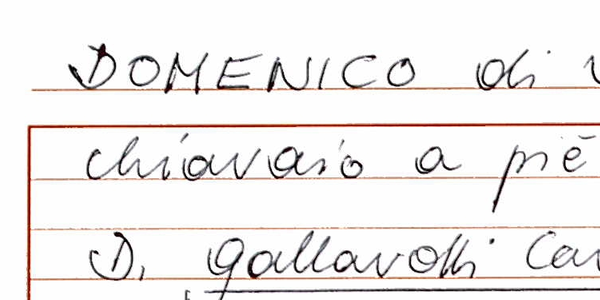 DOMENICO di
chiavaio a piè
D. Gallavotti